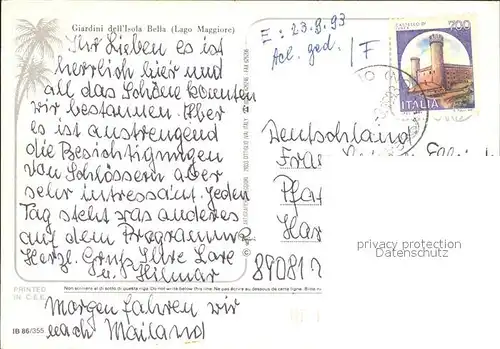 Giardini dell'Isola Bella (Lago Maggiore)
Ihr Lieben es ist
herrlich hier und
all das Schöne konnten
wir bestaunen. Aber
es ist anstrengend
die Besichtigungen
von Schlössern aber
sehr intressant. Jeden
Tag steht was anderes
auf dem Programm
Herzl. Grüße Ihre Lore
u. Hilmar
Morgen fahren wir
nach Mailand
PRINTED
IN C.E.E.
IB 86/355
E: 23.9.93
ged. F
CASTELLO DI
700
ITALIA
Deutschland
Frau
Pfar
Har
privacy protection
Datenschutz
Non scrivere al di sotto di questa riga Do not write below this line Ne pas écrire au dessous de cette ligne